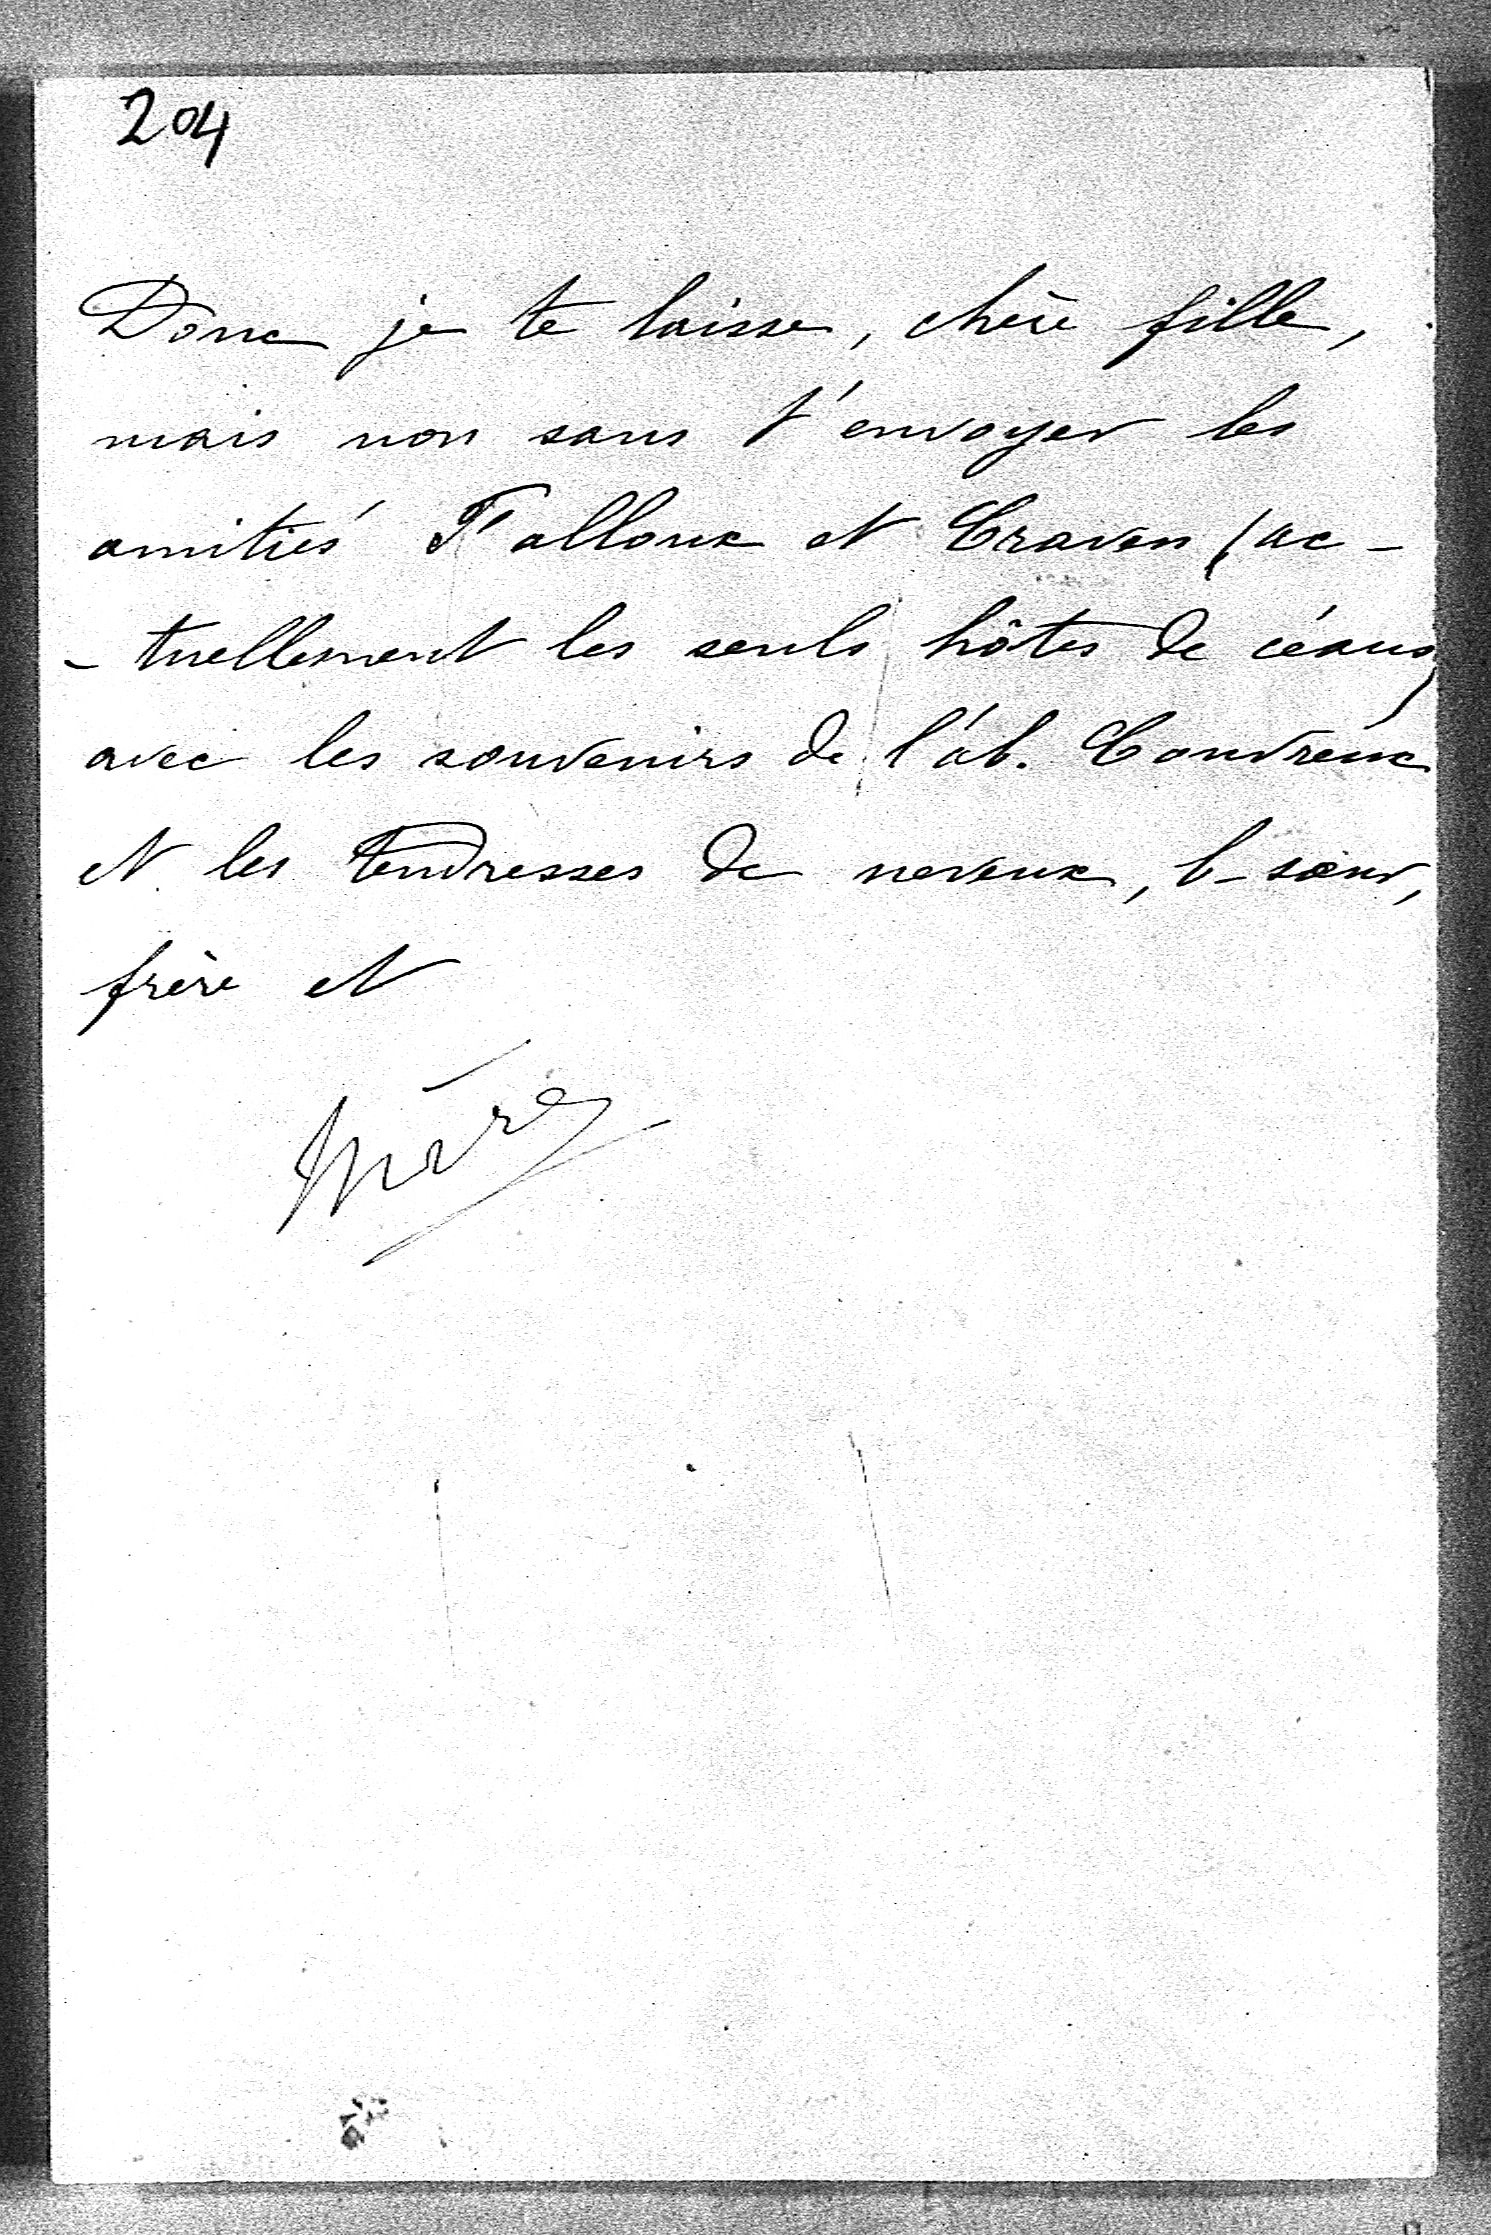 204
Donc je te laisse, chère fille,
mais non sans t'envoyer les
amitiés Falloux et Craven (ac-
-tuellement les seuls hôtes de céans)
avec les souvenirs de l'ab. Couvreux
et les tendresses de neveux, b-sœur,
frère et
Mère